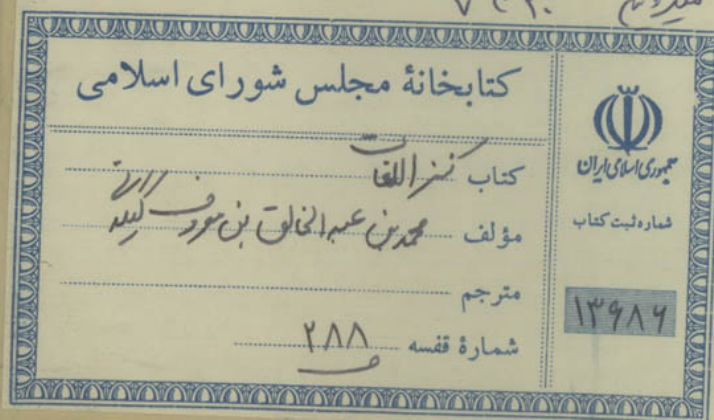 کتابخانهٔ مجلس شورای اسلامی
کتاب کنز اللغات
مؤلف محمد بن عبد الخالق بن معروف
مترجم
شمارهٔ قفسه ۲۸۸
جمهوری اسلامی ایران
شماره ثبت کتاب
۱۳۶۸۶